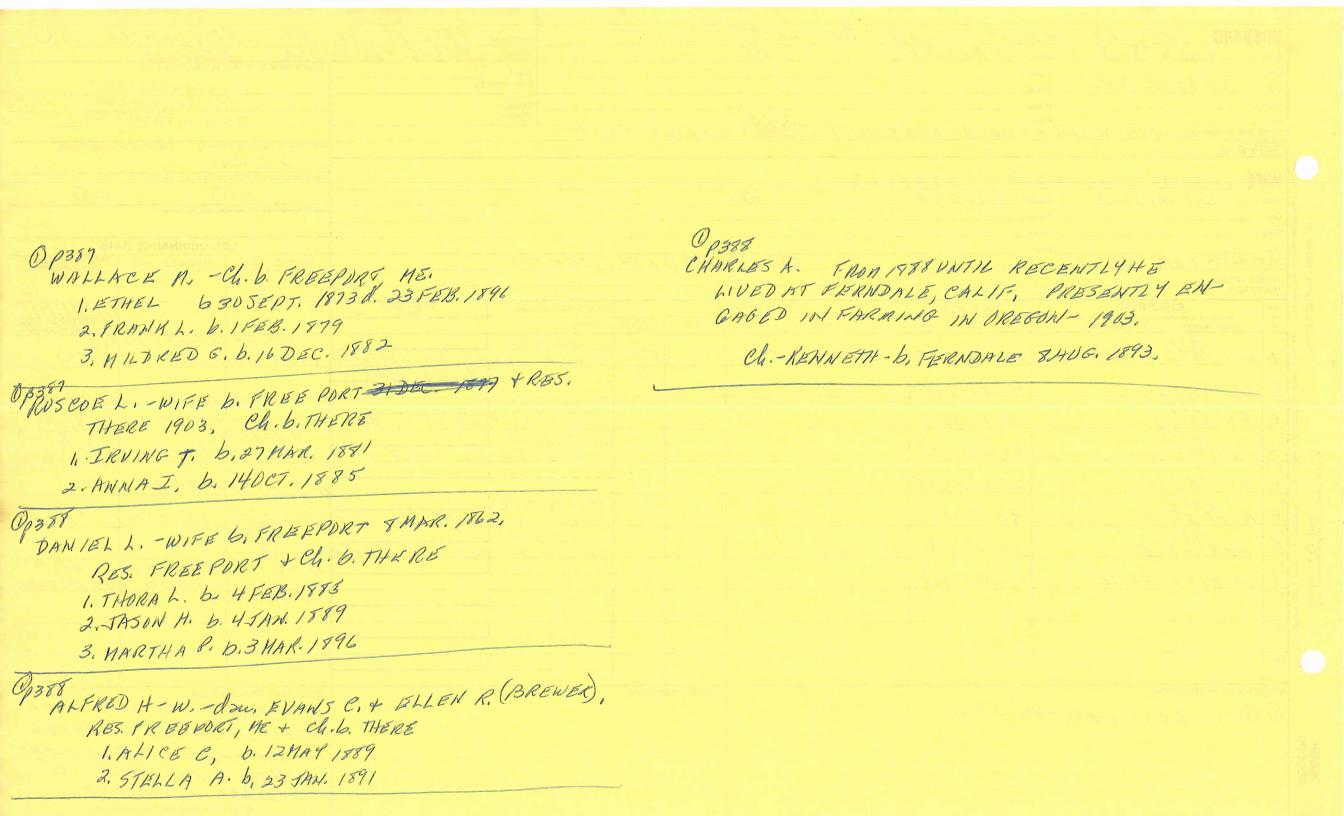 ① p387
WALLACE N. - Ch. b. FREEPORT, ME.
1. ETHEL b 30 SEPT. 1873 d. 23 FEB. 1896
2. FRANK L. b. 1 FEB. 1879
3. MILDRED G. b. 16 DEC. 1882
① p387
ROSCOE L. - WIFE b. FREEPORT 31 DEC. & RES.
THERE 1903, Ch. b. THERE
1. IRVING T. b. 27 MAR. 1881
2. ANNA I, b. 14 OCT. 1885
① p388
DANIEL L. - WIFE b. FREEPORT 8 MAR. 1862,
RES. FREEPORT & Ch. b. THERE
1. THORA L. b. 4 FEB. 1883
2. JASON H. b. 4 JAN. 1889
3. MARTHA P. b. 3 MAR. 1896
① p388
ALFRED H - W. - dau. EVANS C. & ELLEN R. (BREWER),
RES. FREEPORT, ME & Ch. b. THERE
1. ALICE C, b. 12 MAY 1889
2. STELLA A. b, 23 JAN. 1891
① p388
CHARLES A. FROM 1988 UNTIL RECENTLY HE
LIVED AT FERNDALE, CALIF, PRESENTLY EN-
GAGED IN FARMING IN OREGON - 1903.
Ch. - KENNETH - b, FERNDALE 8 AUG. 1893.